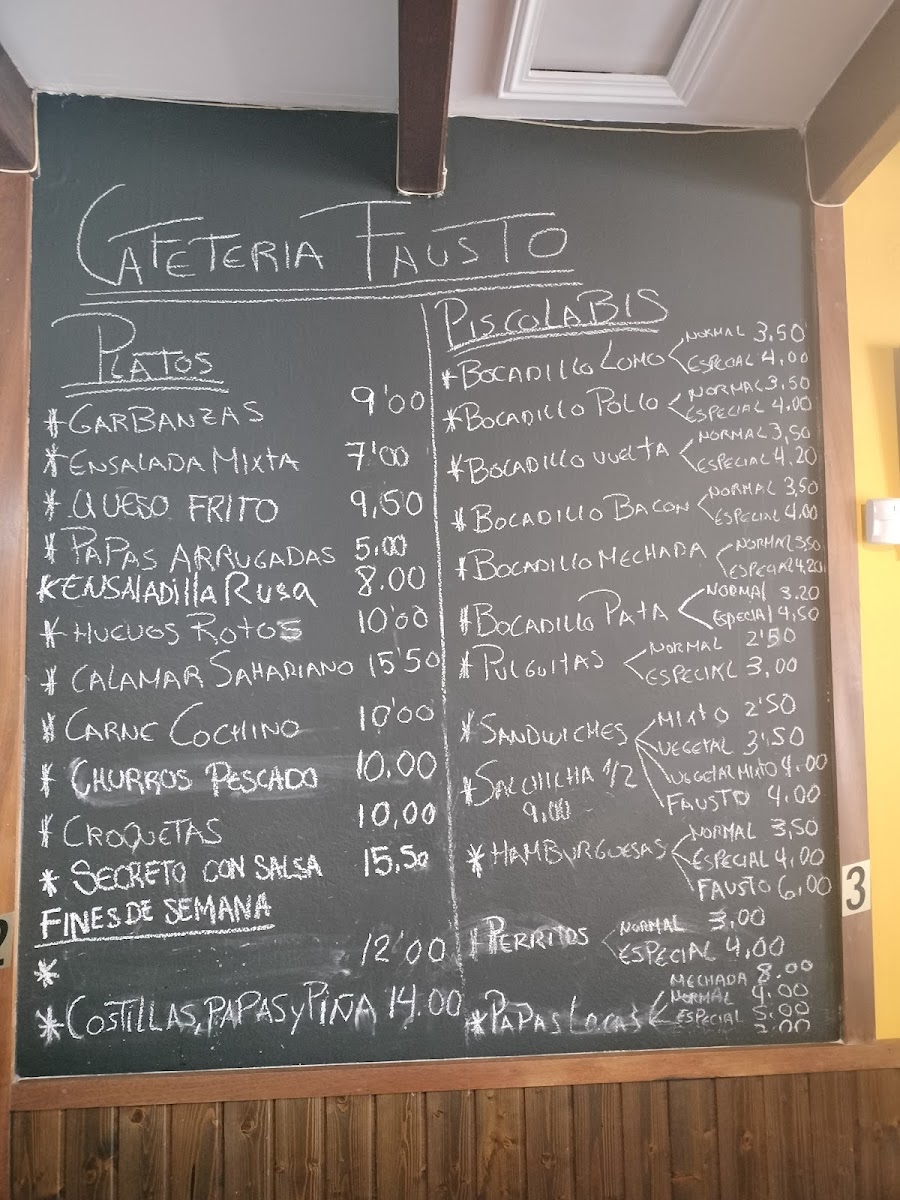 CAFETERIA FAUSTO
PLATOS
* GARBANZAS 9'00
* ENSALADA MIXTA 7'00
* QUESO FRITO 9,50
* PAPAS ARRUGADAS 5.00
* ENSALADILLA RUSA 8.00
* HUEVOS ROTOS 10'00
* CALAMAR SAHARIANO 15'50
* CARNE COCHINO 10'00
* CHURROS PESCADO 10.00
* CROQUETAS 10,00
* SECRETO CON SALSA 15,50
FINES DE SEMANA
* 12'00
* COSTILLAS, PAPAS Y PIÑA 14.00
PISCOLABIS
* BOCADILLO LOMO NORMAL 3,50
ESPECIAL 4,00
* BOCADILLO POLLO NORMAL 3,50
ESPECIAL 4,00
* BOCADILLO VUELTA NORMAL 3,50
ESPECIAL 4,20
* BOCADILLO BACON NORMAL 3,50
ESPECIAL 4,00
* BOCADILLO MECHADA NORMAL 3,50
ESPECIAL 4,20
* BOCADILLO PATA NORMAL 3.20
ESPECIAL 4,50
* PULGUITAS NORMAL 2'50
ESPECIAL 3,00
* SANDWICHES MIXTO 2'50
VEGETAL 3'50
VEGETAL MIXTO 4,00
FAUSTO 4,00
* SALCHICHA 1/2
9,00
* HAMBURGUESAS NORMAL 3,50
ESPECIAL 4,00
FAUSTO 6,00
* PERRITOS NORMAL 3,00
ESPECIAL 4,00
* PAPAS LOCAS MECHADA 8.00
NORMAL 4.00
ESPECIAL 5.00
2
3